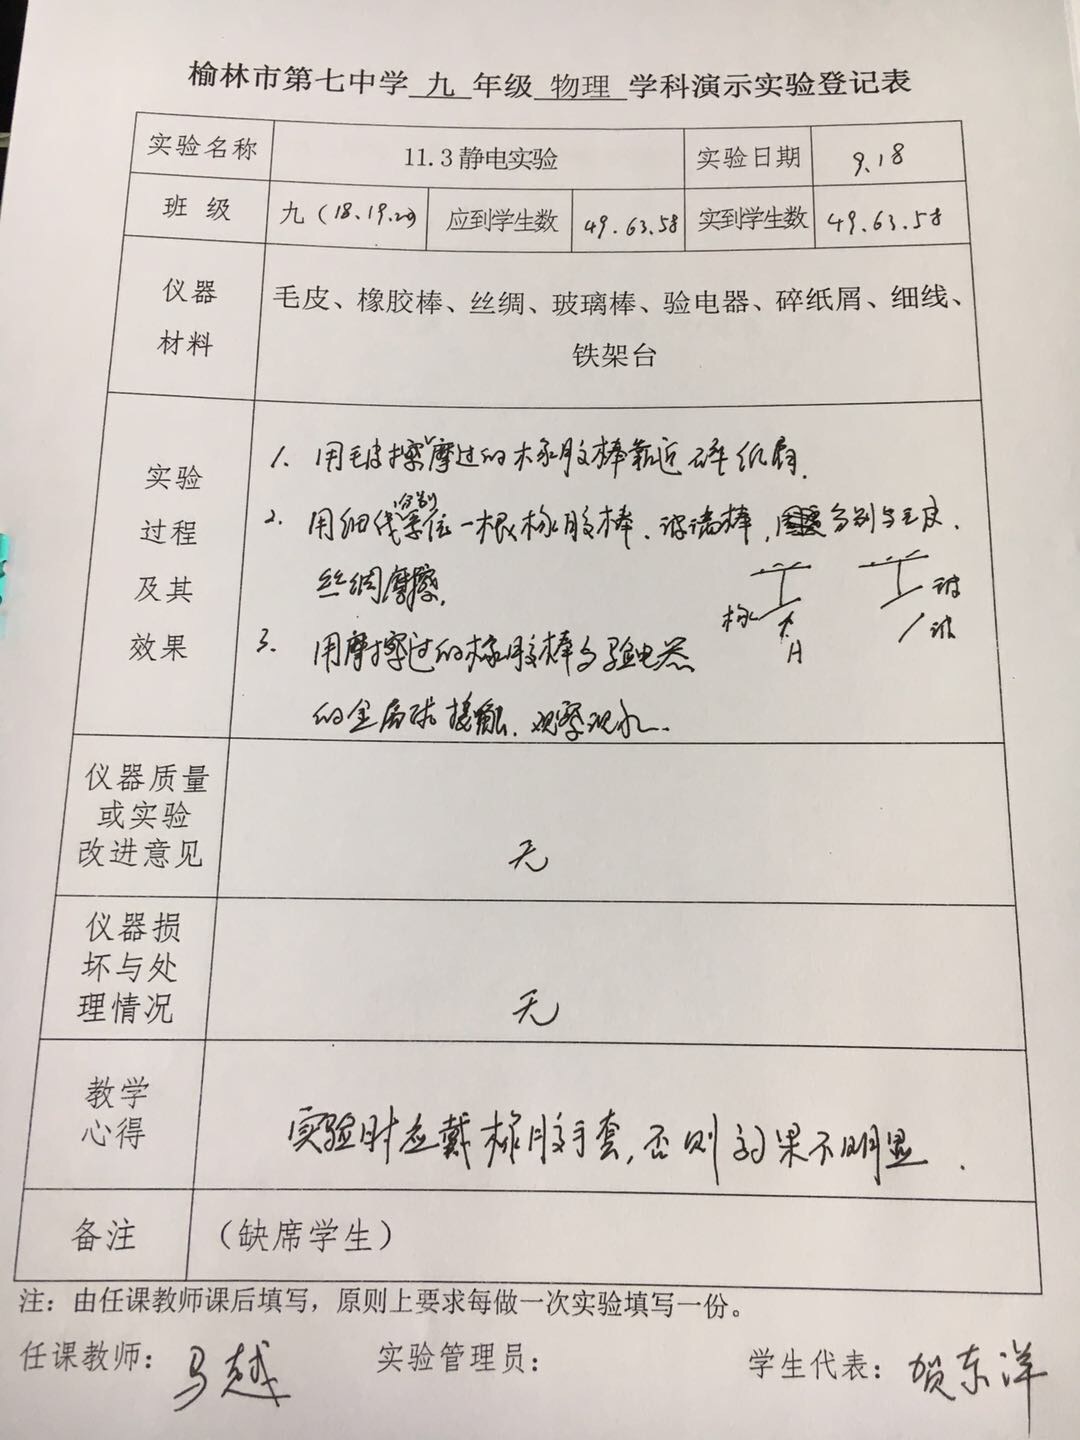 榆林市第七中学 九 年级 物理 学科演示实验登记表
实验名称 11.3静电实验 实验日期 9.18
班 级 九（18.19.20） 应到学生数 49.63.58 实到学生数 49.63.58
仪器
材料
毛皮、橡胶棒、丝绸、玻璃棒、验电器、碎纸屑、细线、
铁架台
实验
过程
及其
效果
1. 用毛皮擦摩过的橡胶棒靠近碎纸屑.
分别
2. 用细线系住一根橡胶棒、玻璃棒，分别与毛皮、
丝绸摩擦.
橡
玻
玻
3. 用摩擦过的橡胶棒与验电器
的金属球接触，观察现象.
仪器质量
或实验
改进意见
无
仪器损
坏与处
理情况
无
教学
心得
实验时应戴橡胶手套，否则效果不明显.
备注 （缺席学生）
注：由任课教师课后填写，原则上要求每做一次实验填写一份。
任课教师：马越 实验管理员： 学生代表：贺东洋